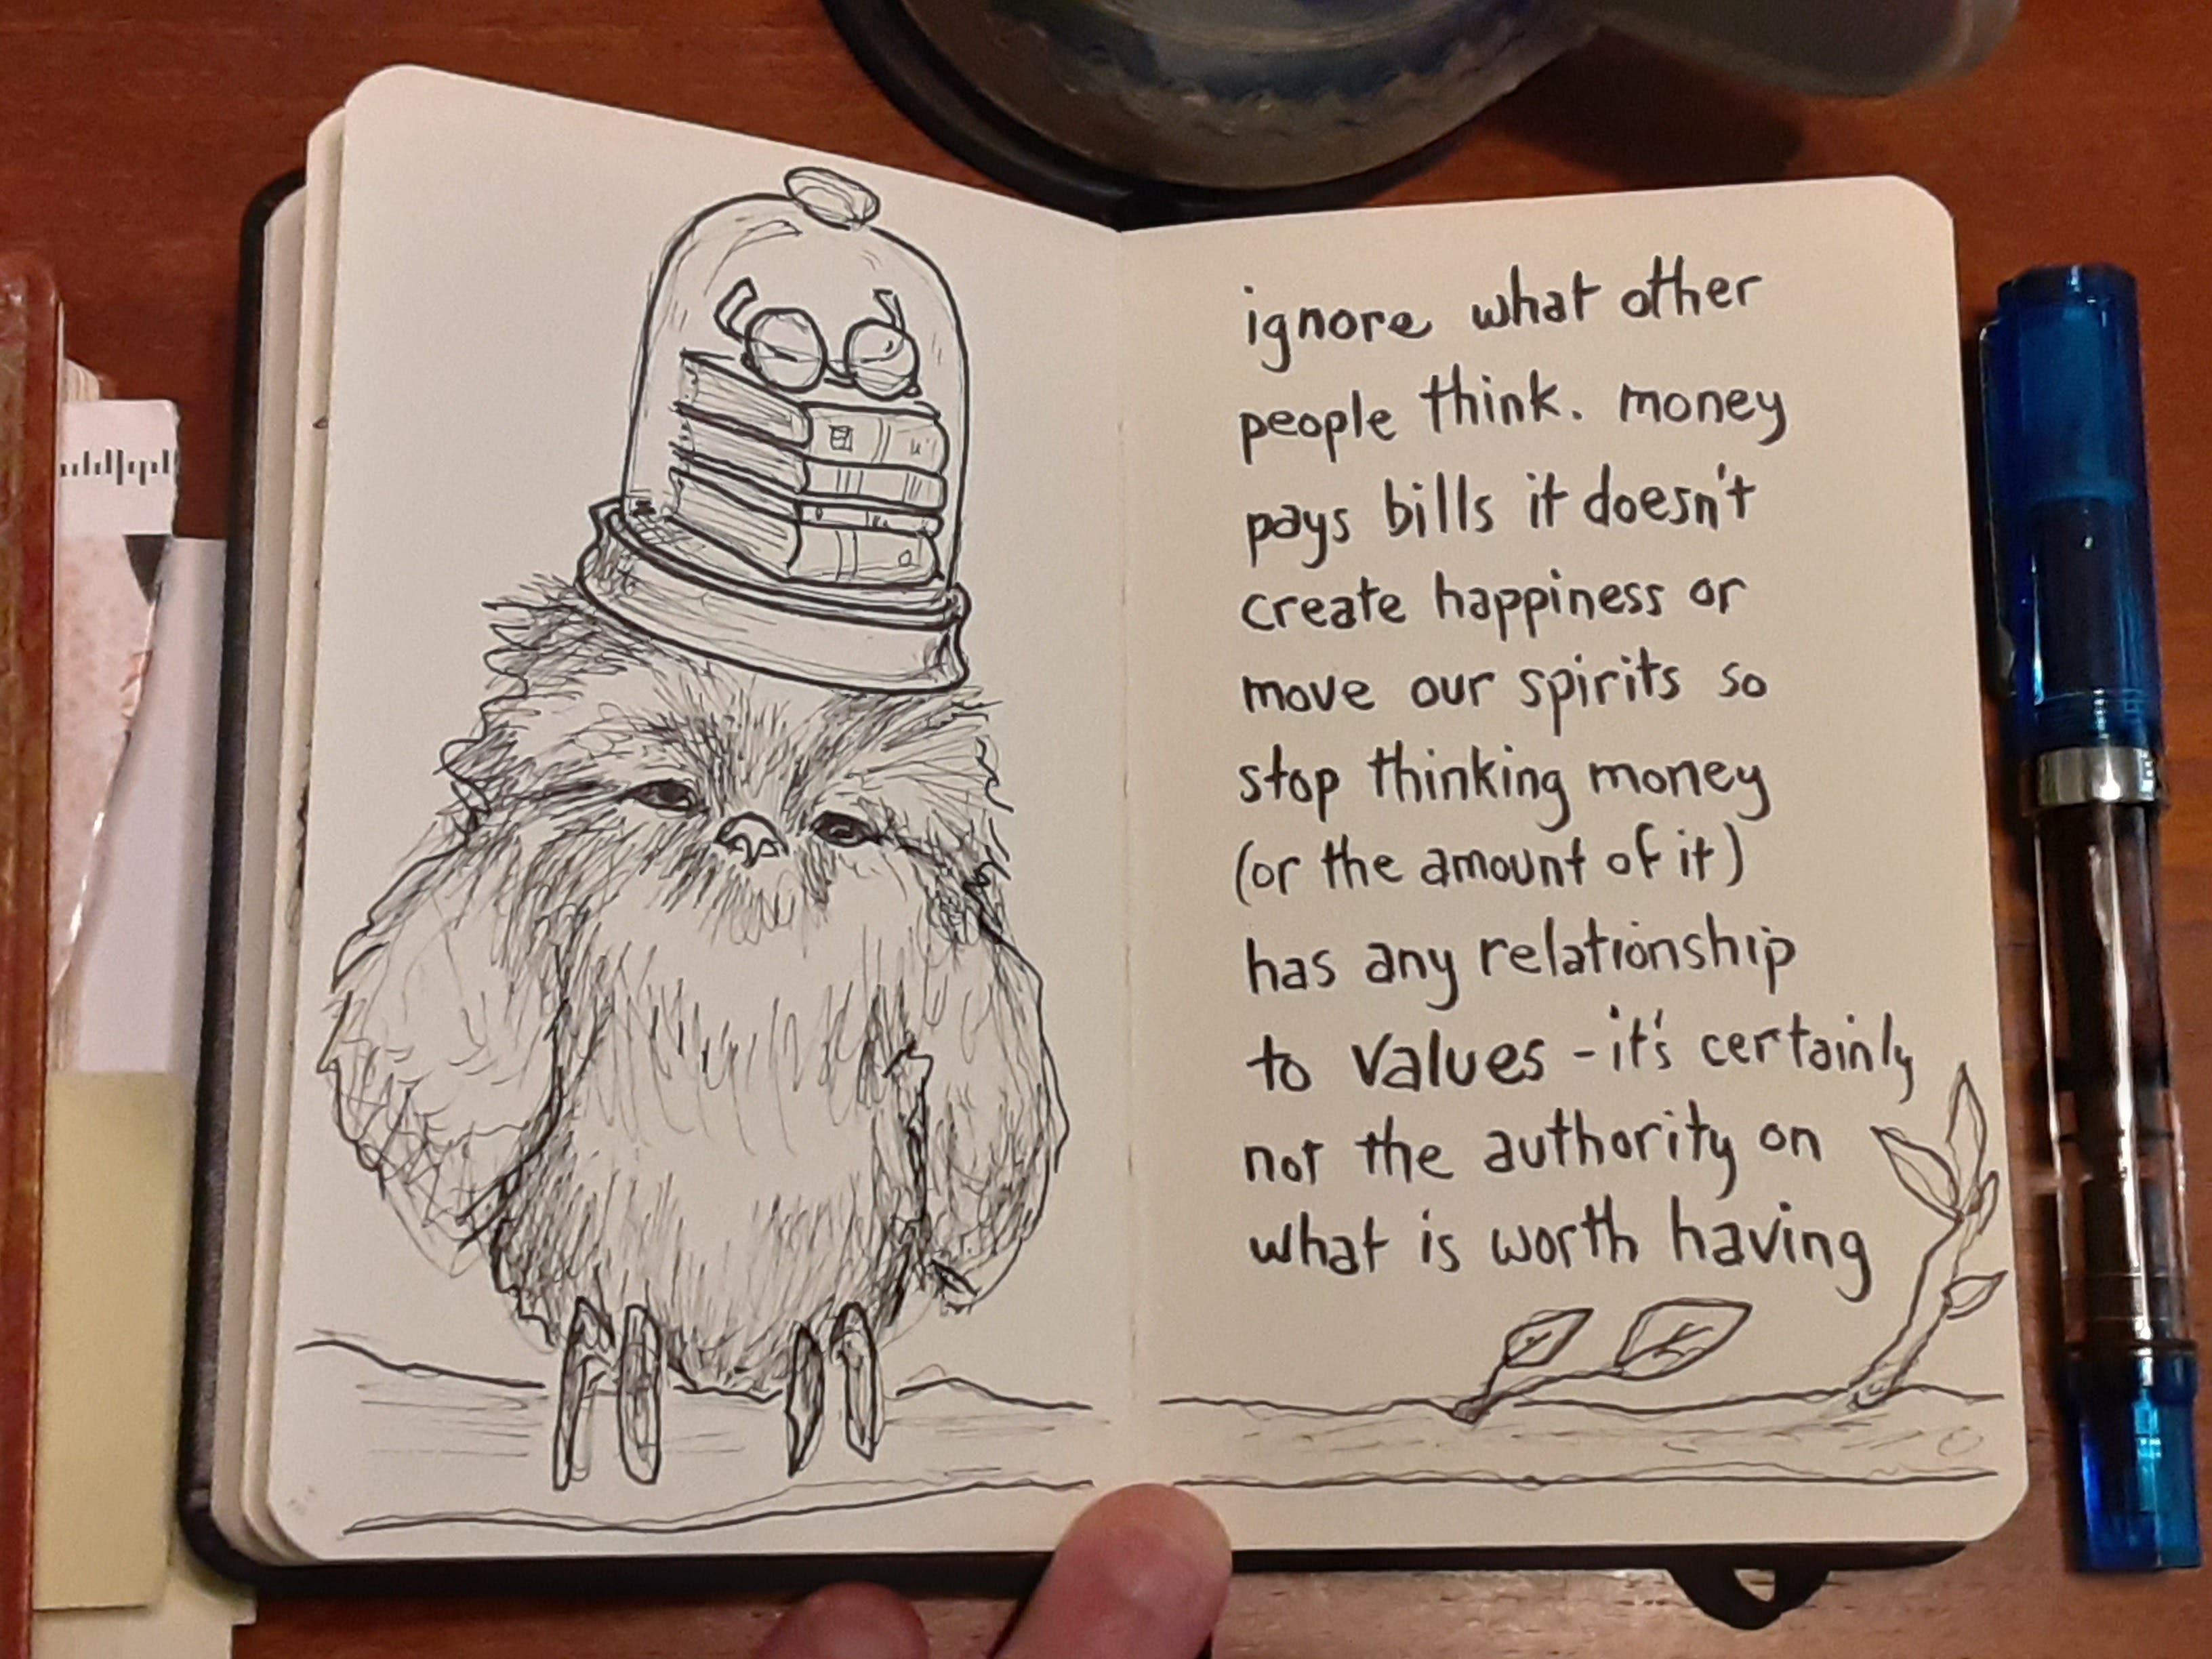 ignore what other
people think. money
pays bills it doesn't
create happiness or
move our spirits so
stop thinking money
(or the amount of it)
has any relationship
to values - it's certainly
not the authority on
what is worth having